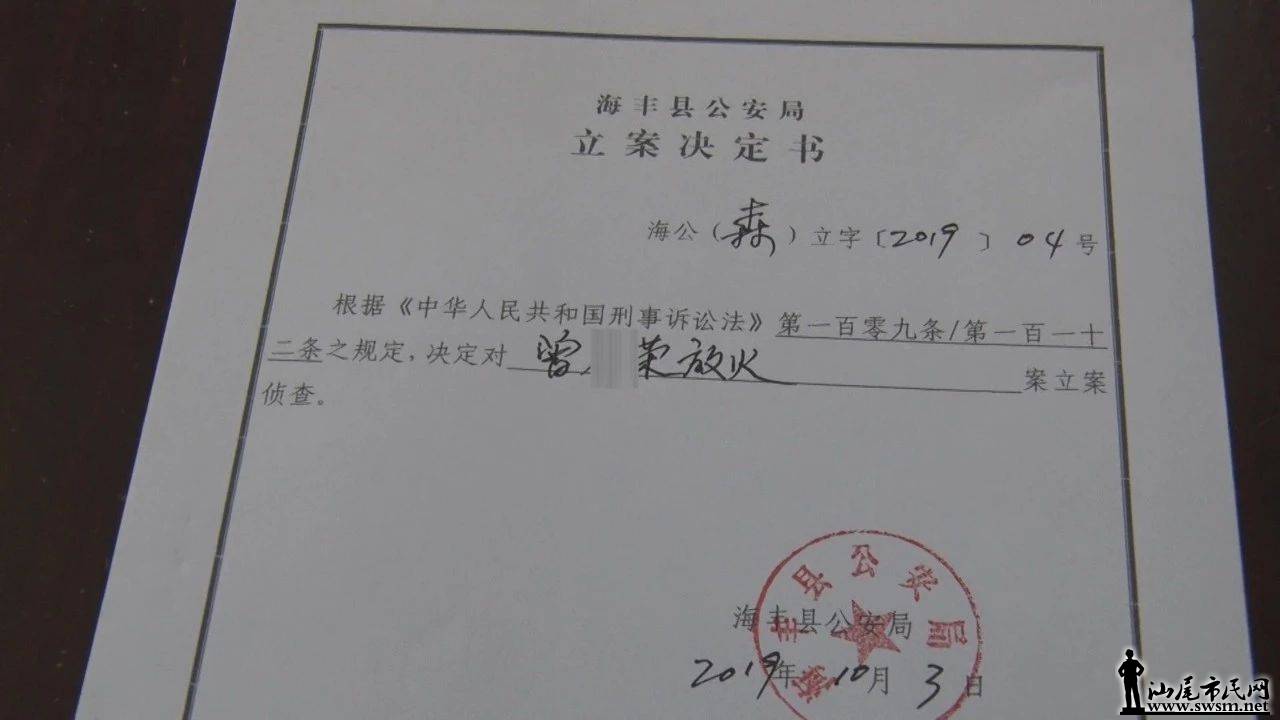 海丰县公安局
立案决定书
海公（森）立字〔2019〕04号
根据《中华人民共和国刑事诉讼法》第一百零九条/第一百一十
二条之规定，决定对曾 荣放火案立案
侦查。
海丰县公安局
海丰县公安局
2019年10月3日
汕尾市民网
www.swsm.net